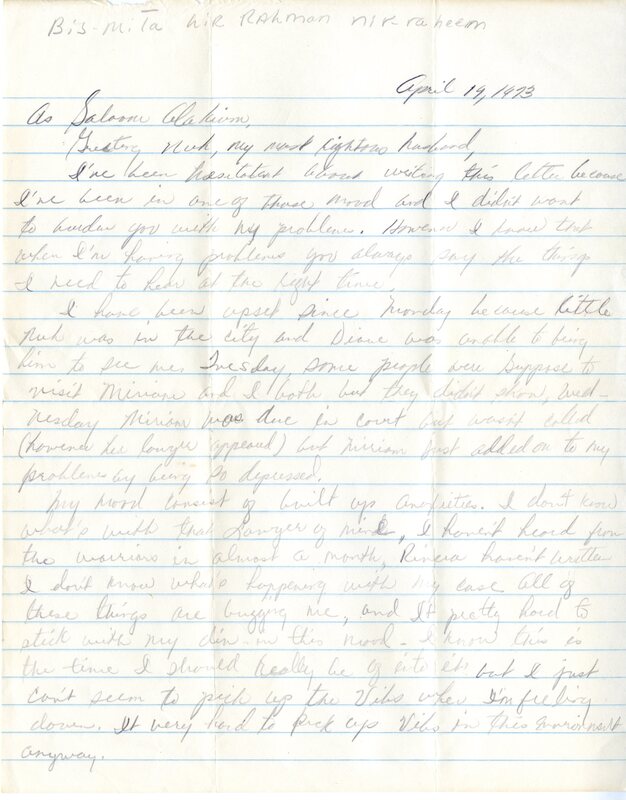 Bis-mila hir RAhman nir-raheem
April 19, 1973
As Salaam Alakium,
Greeting Nuh, my most rightous husband,
I've been hesitatent about writing this letter because
I've been in one of those mood and I didn't want
to burden you with my problems. However I know that
when I'm having problems you always say the things
I need to hear at the right time.
I have been upset since Monday because little
Nuh was in the city and Diane was unable to bring
him to see me. Tuesday some people were suppose to
visit Miriam and I both but they didn't show, Wed-
nesday Miriam was due in court but wasn't called
(however her lawyer appeared) but Miriam just added on to my
problems by being so depressed.
My mood consist of built up anxieties. I don't know
what's with that Lawyer of mine, I haven't heard from
the warriors in almost a month, Rivera haven't written
I don't know what's happening with my case all of
these things are bugging me, and It pretty hard to
stick with my din in this mood - I know this is
the time I should really be of into it but I just
can't seem to pick up the Vibs when I'm feeling
down. It very hard to pick up Vibs in this
anyway.